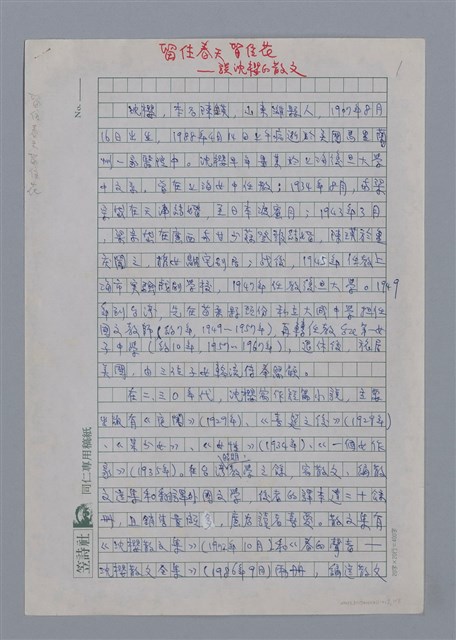 留住春天留住花
——談沈櫻的散文
1
No.
沈櫻,本名陳鍈,山東濰縣人,1907年8月
16日出生,1988年4月14日上午病逝於美國馬里蘭
州一家醫院中。沈櫻早年畢業於上海復旦大學
中文系,曾在上海女中任教;1934年8月,與梁
宗岱在天津結婚,至日本渡蜜月;1943年3月
,梁宗岱在廣西
1945年任教上
海市實驗戲劇學校,1947年任教復旦大學。1949
年到台灣,先在苗栗縣頭份私立大成中學擔任
國文教師(約7年,1949—1957年),再轉任教台北第一女
子中學(約10年,1957—1967年),退休後,移居
美國,由三位子女輪流侍奉照顧。
在二、三0年代,沈櫻寫作短篇小說,主要
出版有《夜闌》(1929年)、《喜筵之後》(1929年)
、《某少女》、《女性》(1934年)、《一個女作
家》(1935年)。來台後,教學之餘,寫散文、編散
文選集和翻譯外國文學,後者的譯本達二十餘
冊,且銷售量,處處讀者喜愛。散文集有
《沈櫻散文集》(1972年10月)和《春的聲音—
沈櫻散文全集》(1986年9月)兩冊,編選散文
笠詩社
同仁專用稿紙